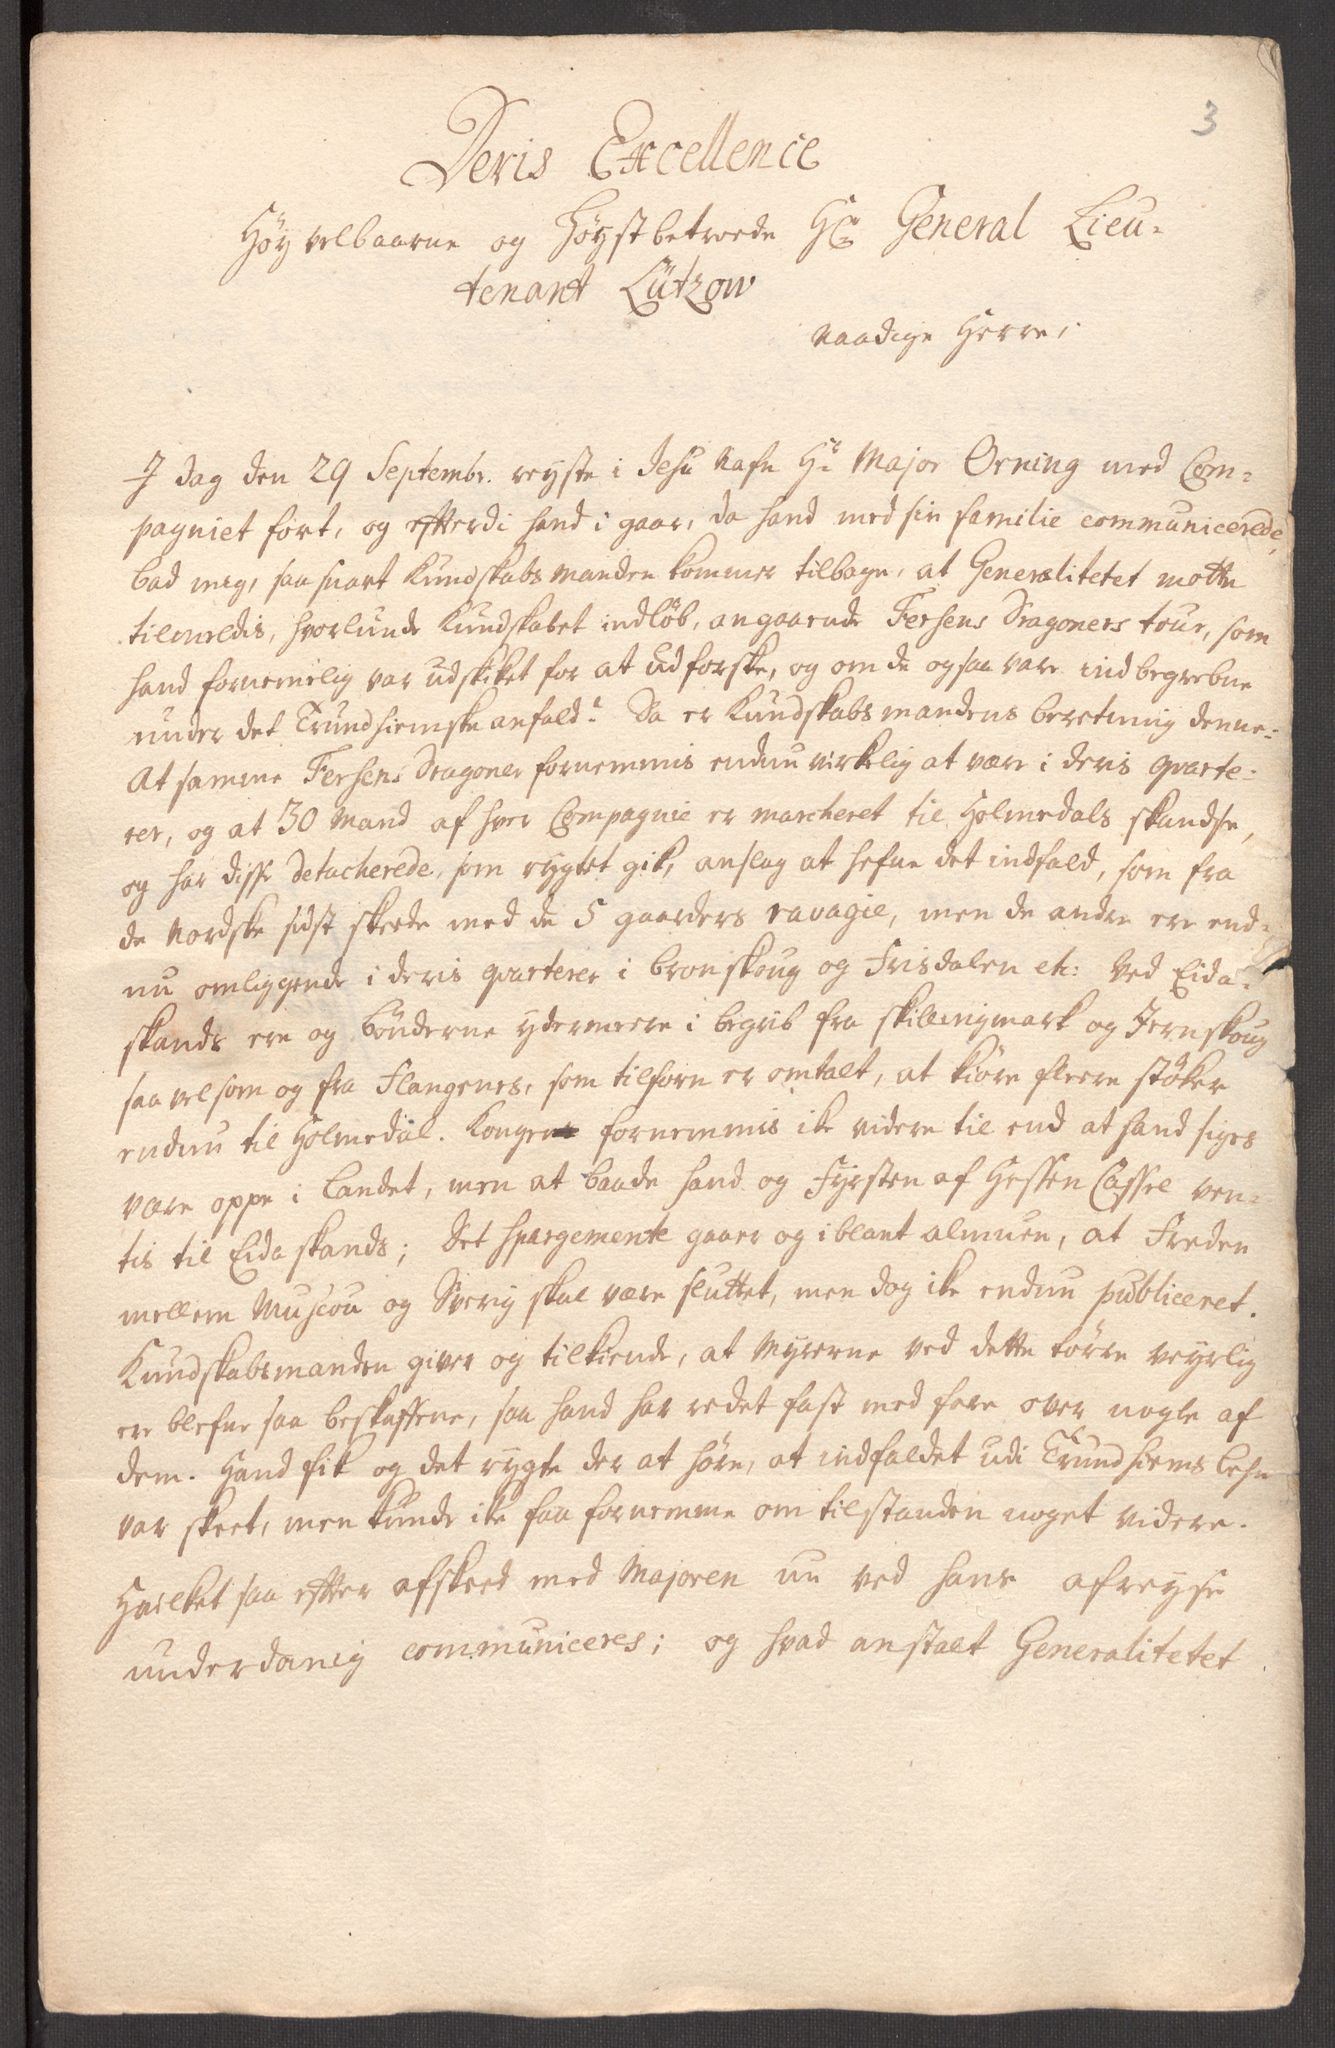 3
Deris Excellence
Höyvelbaarne og Høystbetroede Hr General Lieu-
tenant Lützow
Naadige Herre,
I dag den 29 Septembr. reyste i Jesu Nafn Hr Major Orning med Com-
pagniet fort, og efterdi hand i gaar, da hand med sin familie communicerede,
bad meg, saa snart Kundskabs manden kommer tilbage, at Generalitetet motte
tilmeldis, hvorlunde Kundskabet indlöb, angaaende Fersens Dragoners tour, som
hand fornemelig var udskiket for at udforske, og om de ogsaa vare indbegrebne
under det Trundhiemske anfald? Da er Kundskabs mandens beretning denne:
At samme Fersens Dragoner fornemmis endnu virkelig at være i deris qvarte-
rer, og at 30 Mand af hver Compagnie er marcheret til Holmedals skandse,
og har disse detacherede, som rygtet gik, anslag at hefne det indfald, som fra
de Nordske sidst skeede med de 5 gaarders ravagie, men de andre ere end-
nu omliggende i deris qvarterer i Bronskoug og Frisdalen etc: Ved Eida-
skands ere og bönderne ydermeere i begreb fra Skillingmark og Jernskoug
saa vel som og fra Flangenes, som tilforn er omtalt, at kiöre fleere stöker
endnu til Holmedal. Kongen fornemmis ike videre til end at hand siges
være oppe i Landet, men at baade hand og Fyrsten af Hessen Cassel ven-
tis til Eida skands; Det spargemente gaaer og iblant almuen, at Freden
mellem Muscou og Sverig skal være sluttet, men dog ike endnu publiceret.
Kundskabsmanden giver og tilkiende, at Myrerne ved dette törre veyrlig
ere blefne saa beskaffene, saa hand har redet fast med fare over nogle af
dem. Hand fik og det rygte der at höre, at indfaldet udi Trundhiems Lehn
var skeet, men kunde ike faa fornemme om tilstanden noget videre.
Hvilket saa efter afskeed med Majoren nu ved hans afreyse
underdanig communiceres; og hvad anstalt Generalitetet